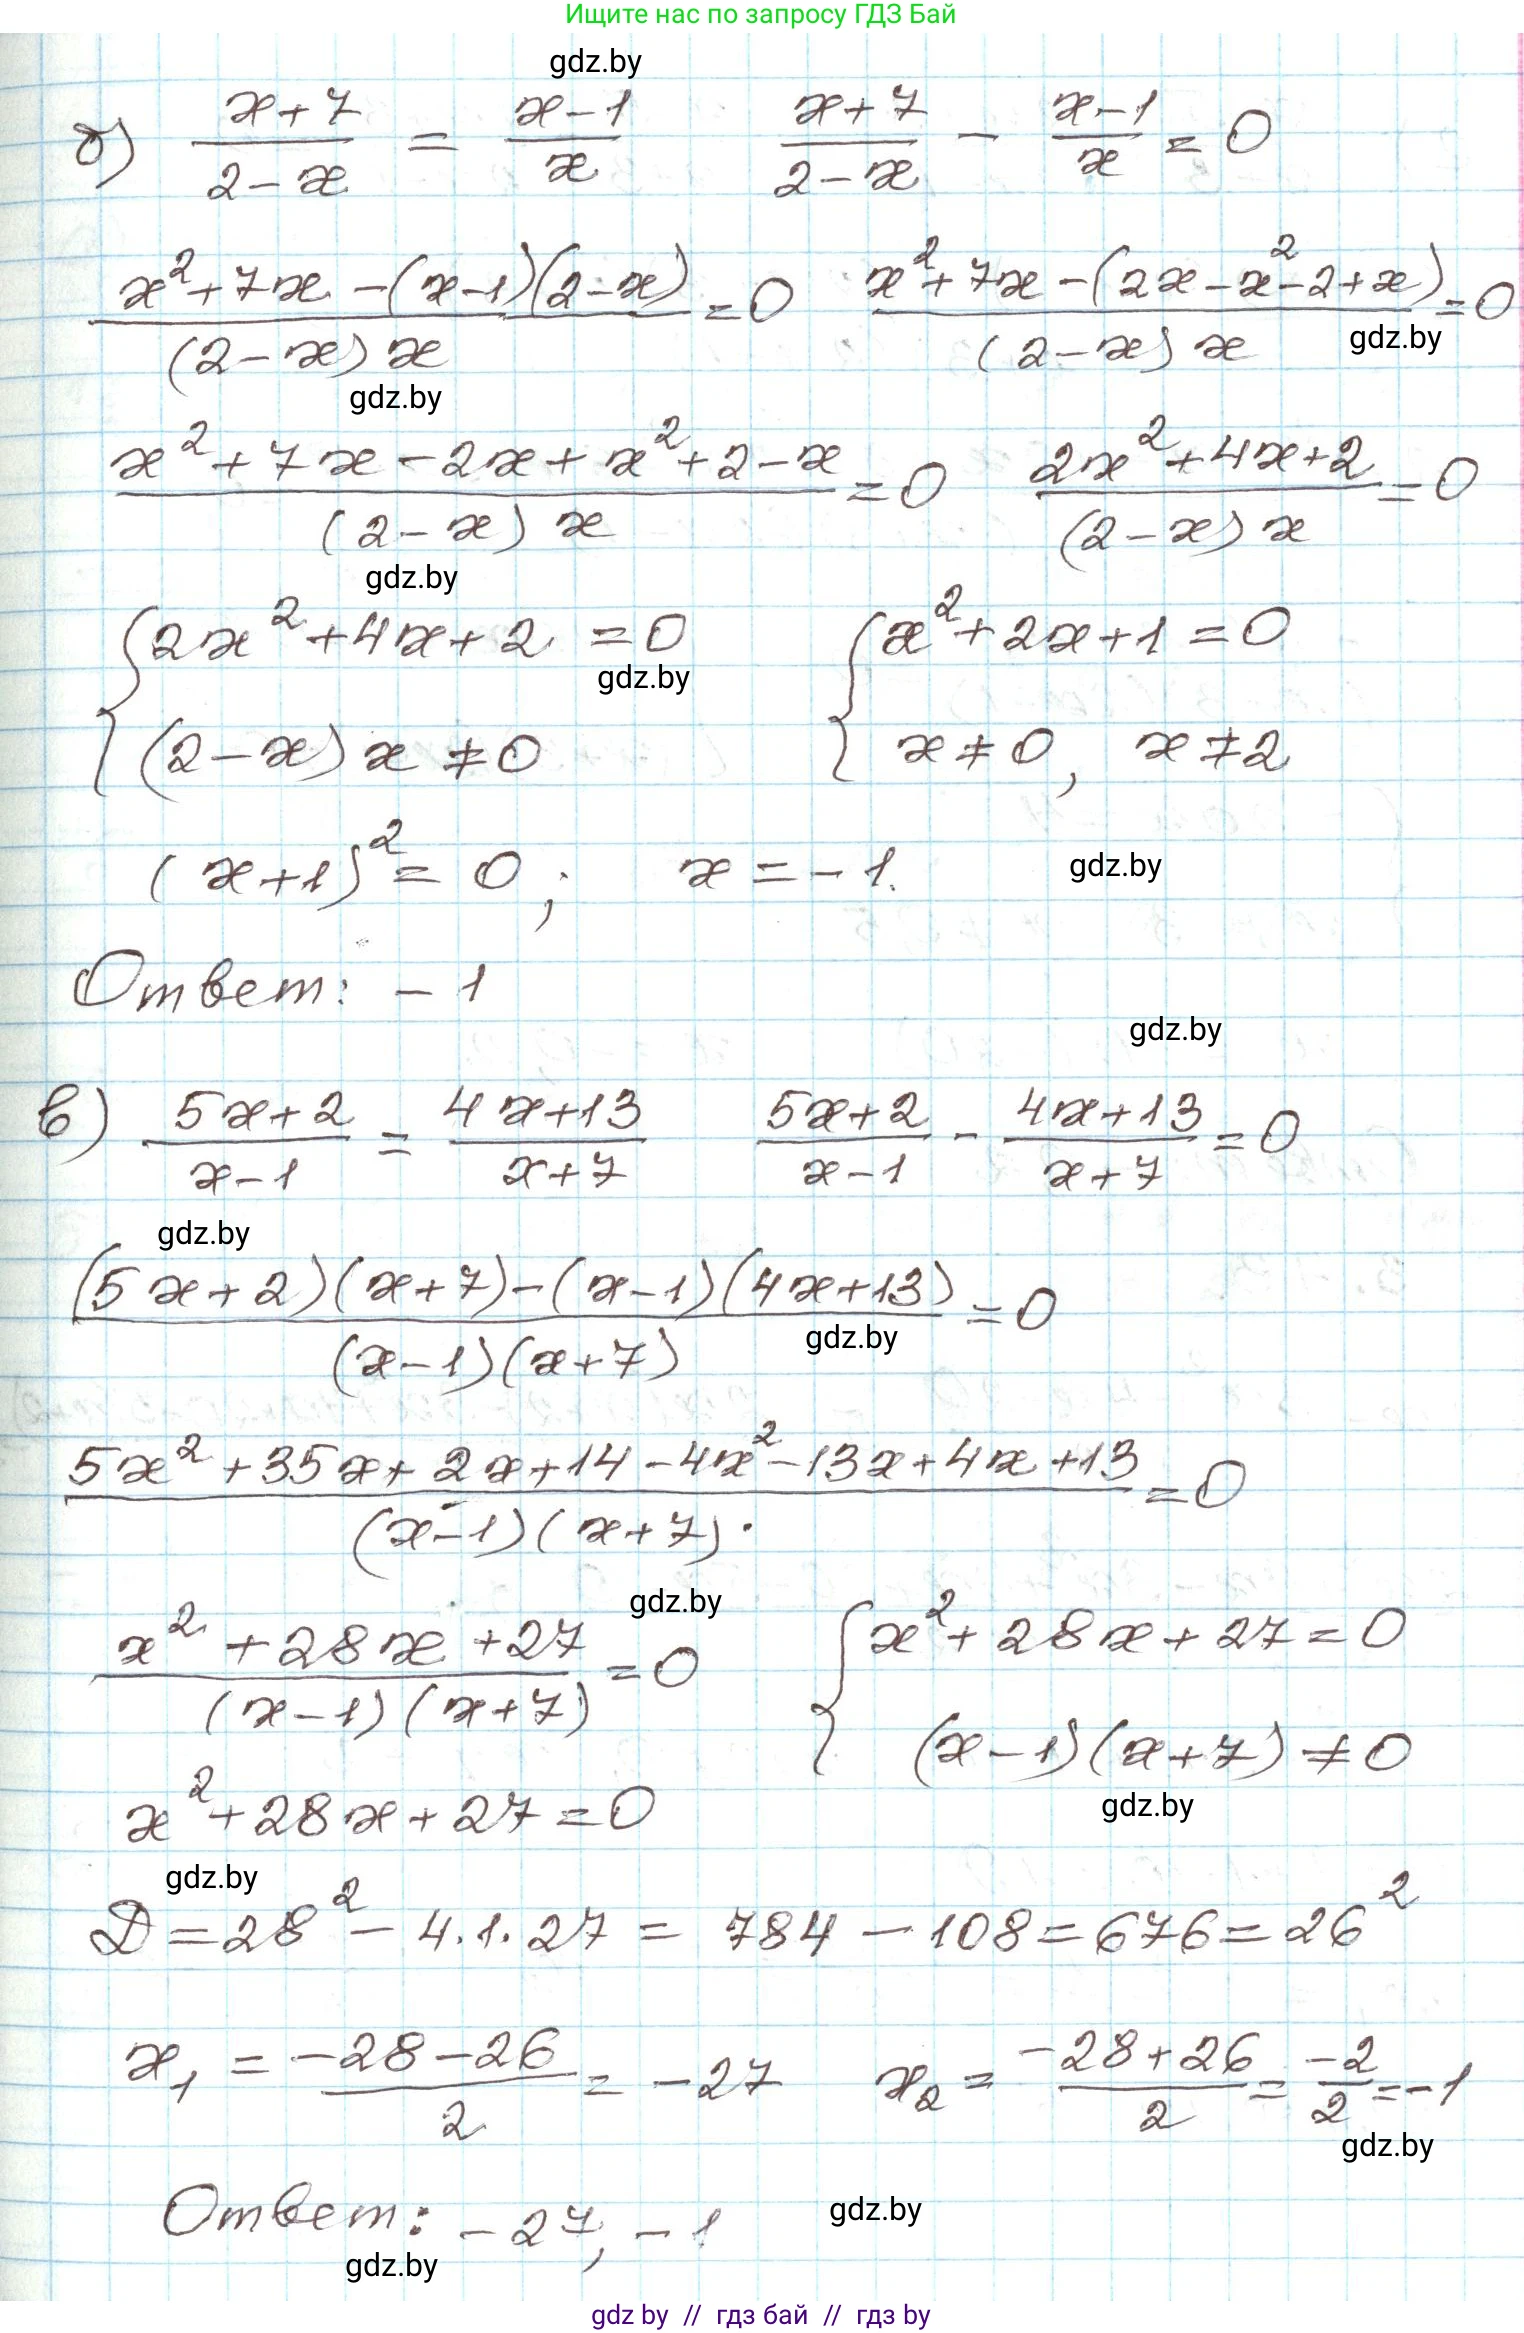 Ищите нас по запросу ГДЗ Бай
gdz.by
б) (x+7)/(2-x) = (x-1)/x   (x+7)/(2-x) - (x-1)/x = 0
(x²+7x-(x-1)(2-x))/((2-x)x) = 0   (x²+7x-(2x-x²-2+x))/((2-x)x) = 0
gdz.by
gdz.by
(x²+7x-2x+x²+2-x)/((2-x)x) = 0   (2x²+4x+2)/((2-x)x) = 0
gdz.by
{2x²+4x+2=0   {x²+2x+1=0
gdz.by
(2-x)x≠0   x≠0, x≠2
(x+1)²=0; x=-1.
gdz.by
Ответ: -1
gdz.by
в) (5x+2)/(x-1) = (4x+13)/(x+7)   (5x+2)/(x-1) - (4x+13)/(x+7) = 0
gdz.by
((5x+2)(x+7)-(x-1)(4x+13))/((x-1)(x+7)) = 0
gdz.by
(5x²+35x+2x+14-4x²-13x+4x+13)/((x-1)(x+7)) = 0
gdz.by
(x²+28x+27)/((x-1)(x+7)) = 0   {x²+28x+27=0
(x-1)(x+7)≠0
gdz.by
x²+28x+27=0
gdz.by
D=28²-4·1·27 = 784-108=676=26²
x₁ = (-28-26)/2 = -27   x₂ = (-28+26)/2 = -2/2 = -1
gdz.by
Ответ: -27, -1
gdz.by
gdz.by
gdz by // гдз бай // гдз by